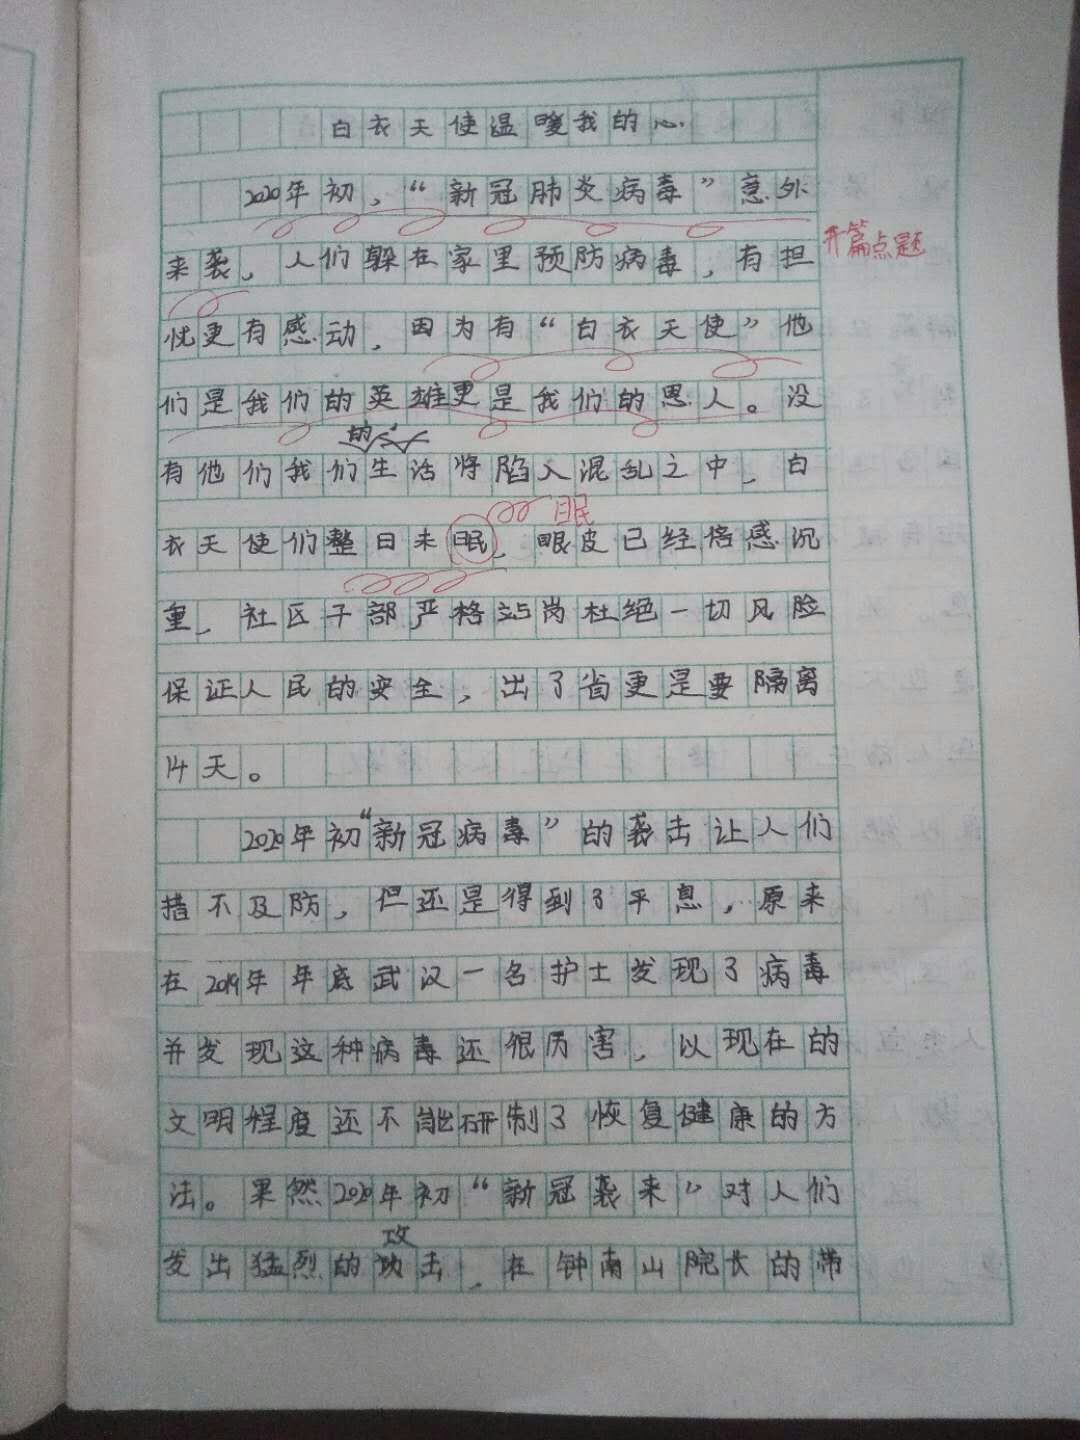 白衣天使温暖我的心
2020年初，“新冠肺炎病毒”意外
开篇点题
来袭，人们躲在家里预防病毒，有担
忧更有感动，因为有“白衣天使”他
们是我们的英雄更是我们的恩人。没
的
有他们我们生活将陷入混乱之中，白
眠
衣天使们整日未眠，眼皮已经倍感沉
重，社区干部严格站岗杜绝一切风险
保证人民的安全，出了省更是要隔离
14天。
2020年初“新冠病毒”的袭击让人们
措不及防，但还是得到了平息，原来
在2019年年底武汉一名护士发现了病毒
并发现这种病毒还很厉害，以现在的
文明程度还不能研制了恢复健康的方
法。果然2020年初“新冠袭来”对人们
攻
发出猛烈的击，在钟南山院长的带